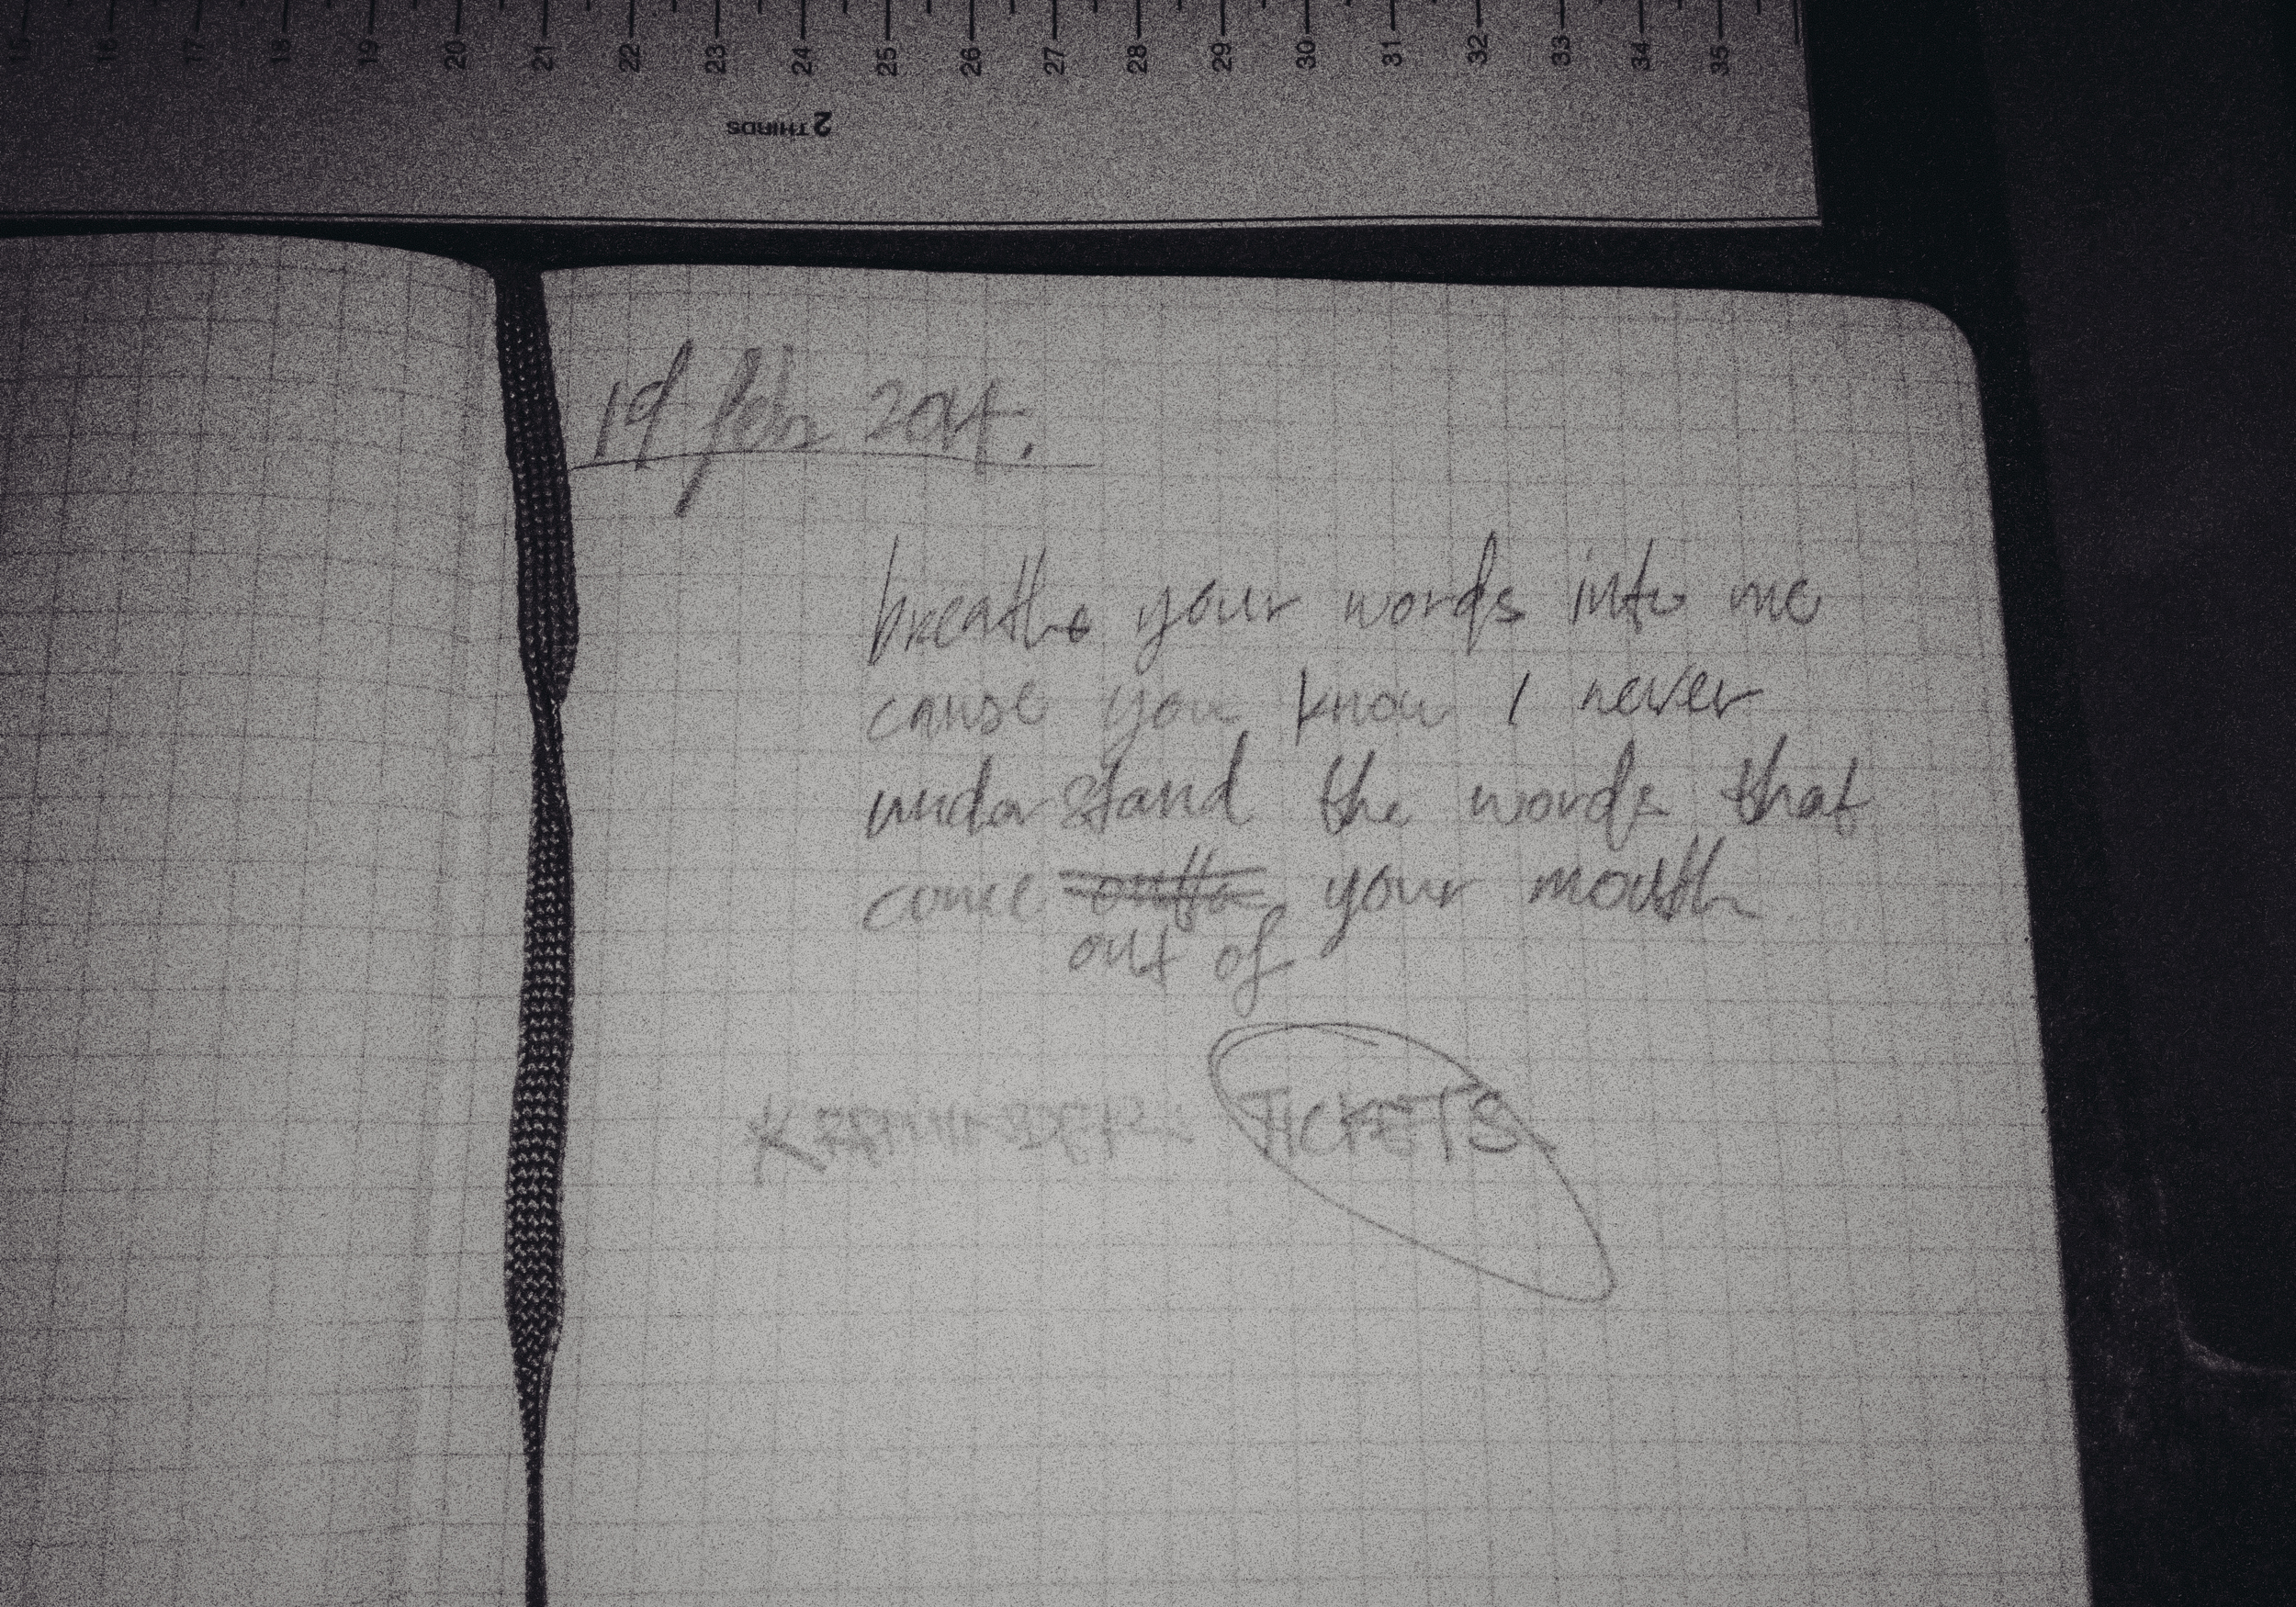 15 16 17 18 19 20 21 22 23 24 25 26 27 28 29 30 31 32 33 34 35
2 THIRDS
19 feb 2014.
breathe your words into me
cause you know I never
understand the words that
come outta your mouth
out of
TICKETS